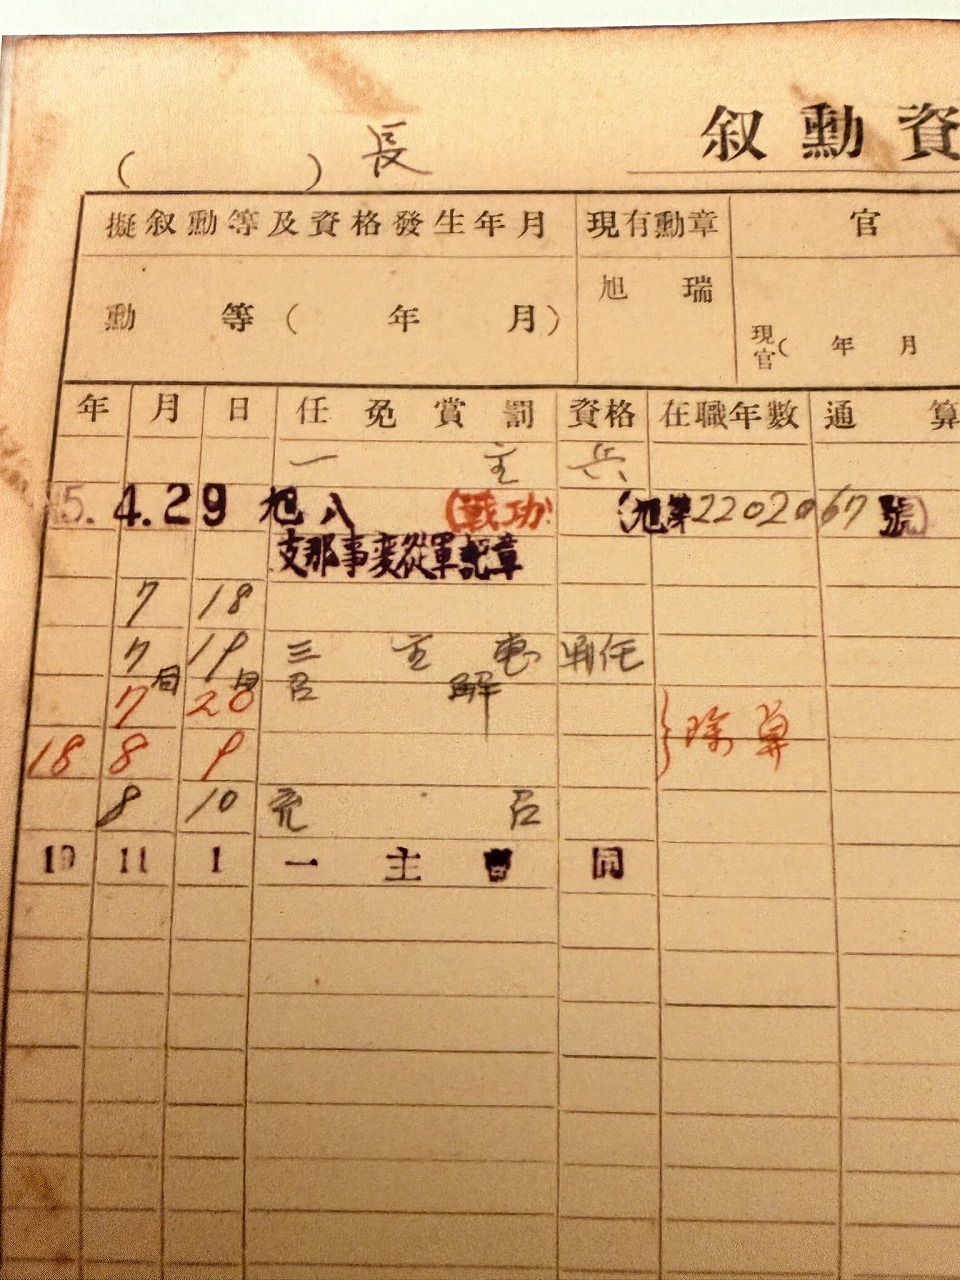 ( ) 長 叙勳資
擬叙勳等及資格發生年月 現有勳章 官
勳 等 ( 年 月) 旭 瑞 現官( 年 月
年 月 日 任免賞罰 資格 在職年數 通算
一 主 兵
15. 4.29 旭八 (戰功) (旭第2202067號)
支那事変從軍記章
7 18
7 19 三 主 曹 判任
7月 20日 召 解
除算
18 8 9
8 10 充 召
19 11 1 一 主 曹 同